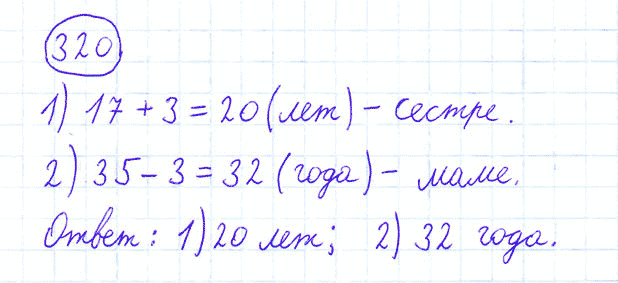 320
1) 17 + 3 = 20 (лет) - сестре.
2) 35 - 3 = 32 (года) - маме.
Ответ: 1) 20 лет; 2) 32 года.